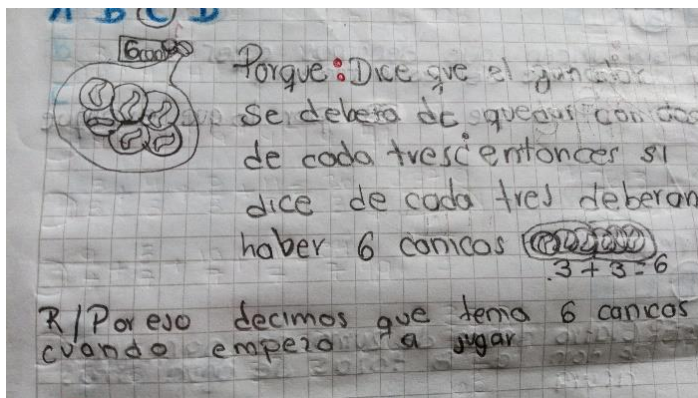 A B C D
Porque: Dice que el
se debera de quedar con dos
de cada tres: entonces si
dice de cada tres deberan
haber 6 canicas
3 + 3 = 6
R/Por eso decimos que tenia 6 canicas
cuando empezo a jugar